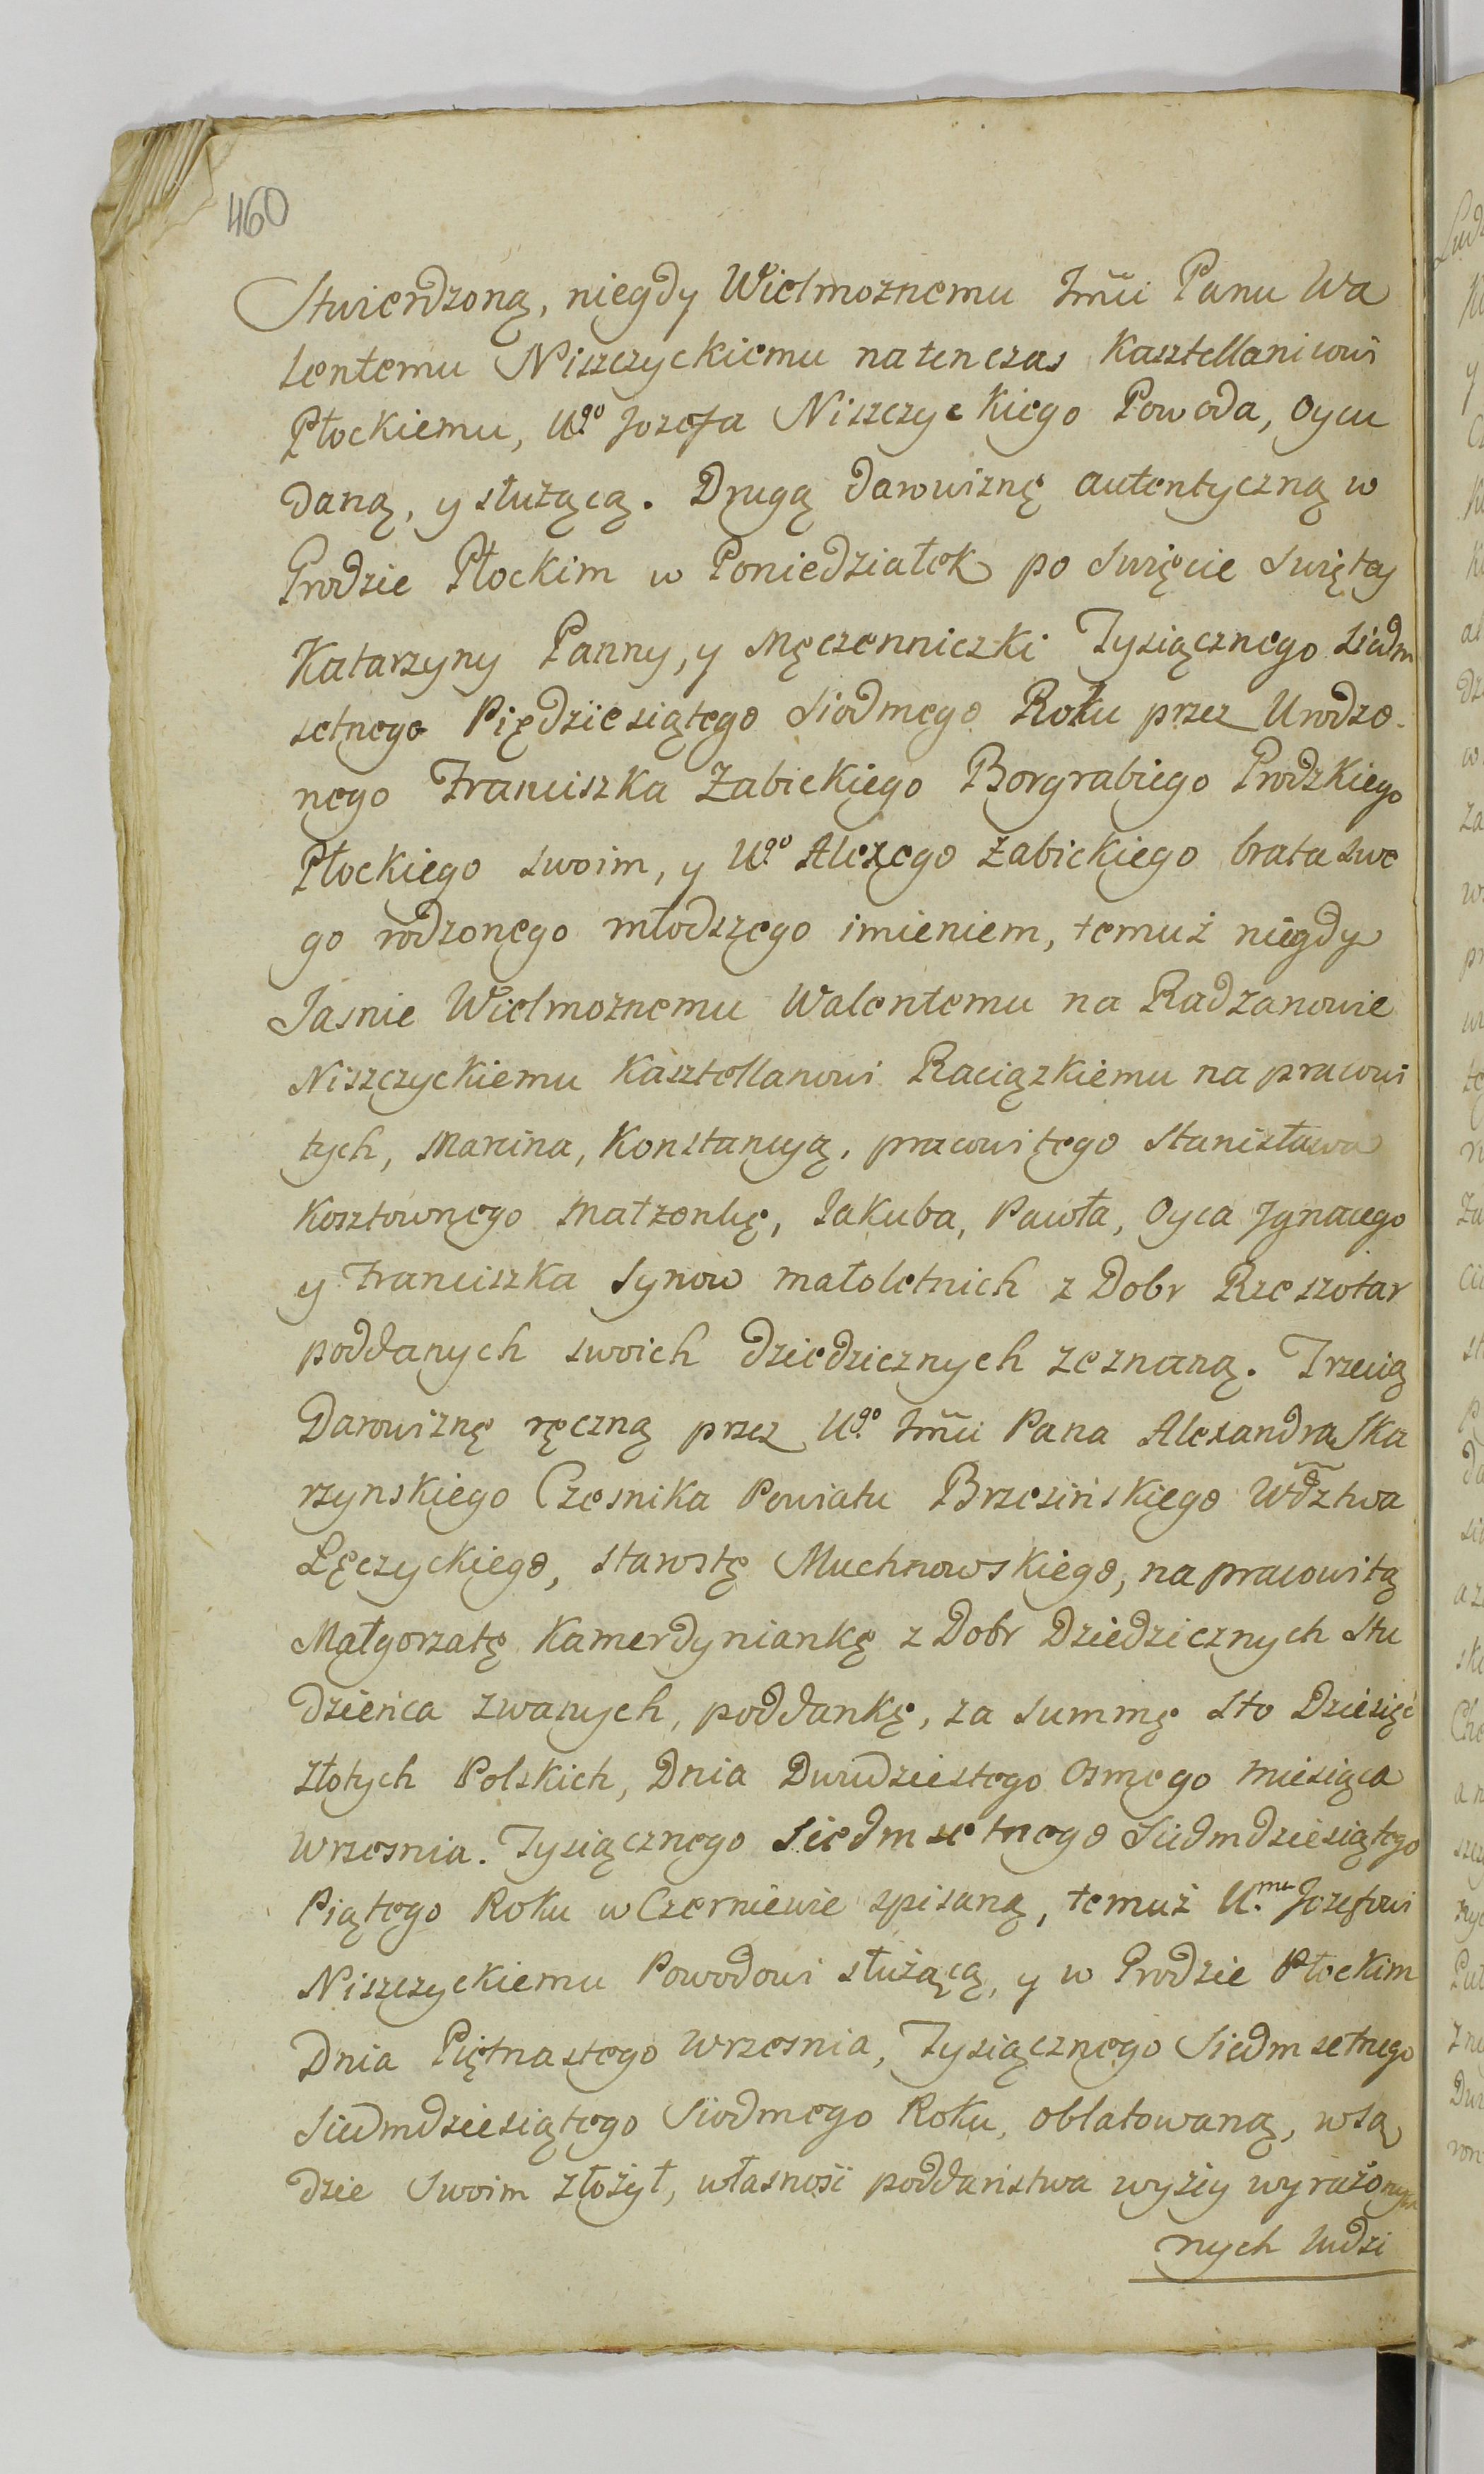 460
Stwierdzoną, niegdy Wielmoznemu Jmci Panu Wa
lentemu Niszczyckiemu natenczas Kasztellanicowi
Płockiemu, Ugo Jozefa Niszczyckiego Powoda, Oycu
daną, y służącą. Drugą darowiznę autentyczną w
Grodzie Płockim w Poniedziałek po Swięcie Swiętey
Katarzyny Panny, y Męczenniczki Tysiącznego Siedm
setnego Piędziesiątego Siodmego Roku przez Urodzo-
nego Franciszka Żabickiego Borgrabiego Grodzkiego
Płockiego swoim, y Ugo Alexego Żabickiego brata swe
go rodzonego młodszego imieniem, temuż niegdy
Jasnie Wielmoznemu Walentemu na Radzanowie
Niszczyckiemu Kasztellanowi Raciązkiemu na pracowi
tych, Marcina, Konstancyą, pracowitego Stanisława
Kosztownego Małzonkę, Jakuba, Pawła, Oyca Jgnacego
y Franciszka Synow małoletnich z Dobr Rzeszotar
poddanych swoich dziedzicznych zeznaną. Trzecią
Darowiznę ręczną przez Ugo Jmci Pana Alexandra Ska
rzynskiego Czesnika Powiatu Brzezińskiego Wdztwa
Łęczyckiego, Starostę Muchnowskiego, na pracowitą
Małgorzatę Kamerdyniankę z Dobr Dziedzicznych Stu
dzieńca zwanych, poddankę, za Summę Sto Dziesięć
złotych Polskich, Dnia Dwudziestego Osmego Miesiąca
Wrzesnia. Tysiącznego Siedmsetnego Siedmdziesiątego
Piątego Roku w Czerniewie spisaną, temuż Umu Jozefowi
Niszczyckiemu Powodowi służącą, y w Grodzie Płockim
Dnia Piętnastego Wrzesnia, Tysiącznego Siedmsetnego
Siedmdziesiątego Siodmego Roku, oblatowaną, w Są
dzie Swoim złożył, własność poddaństwa wyżey wyrażonych
nych ludzi